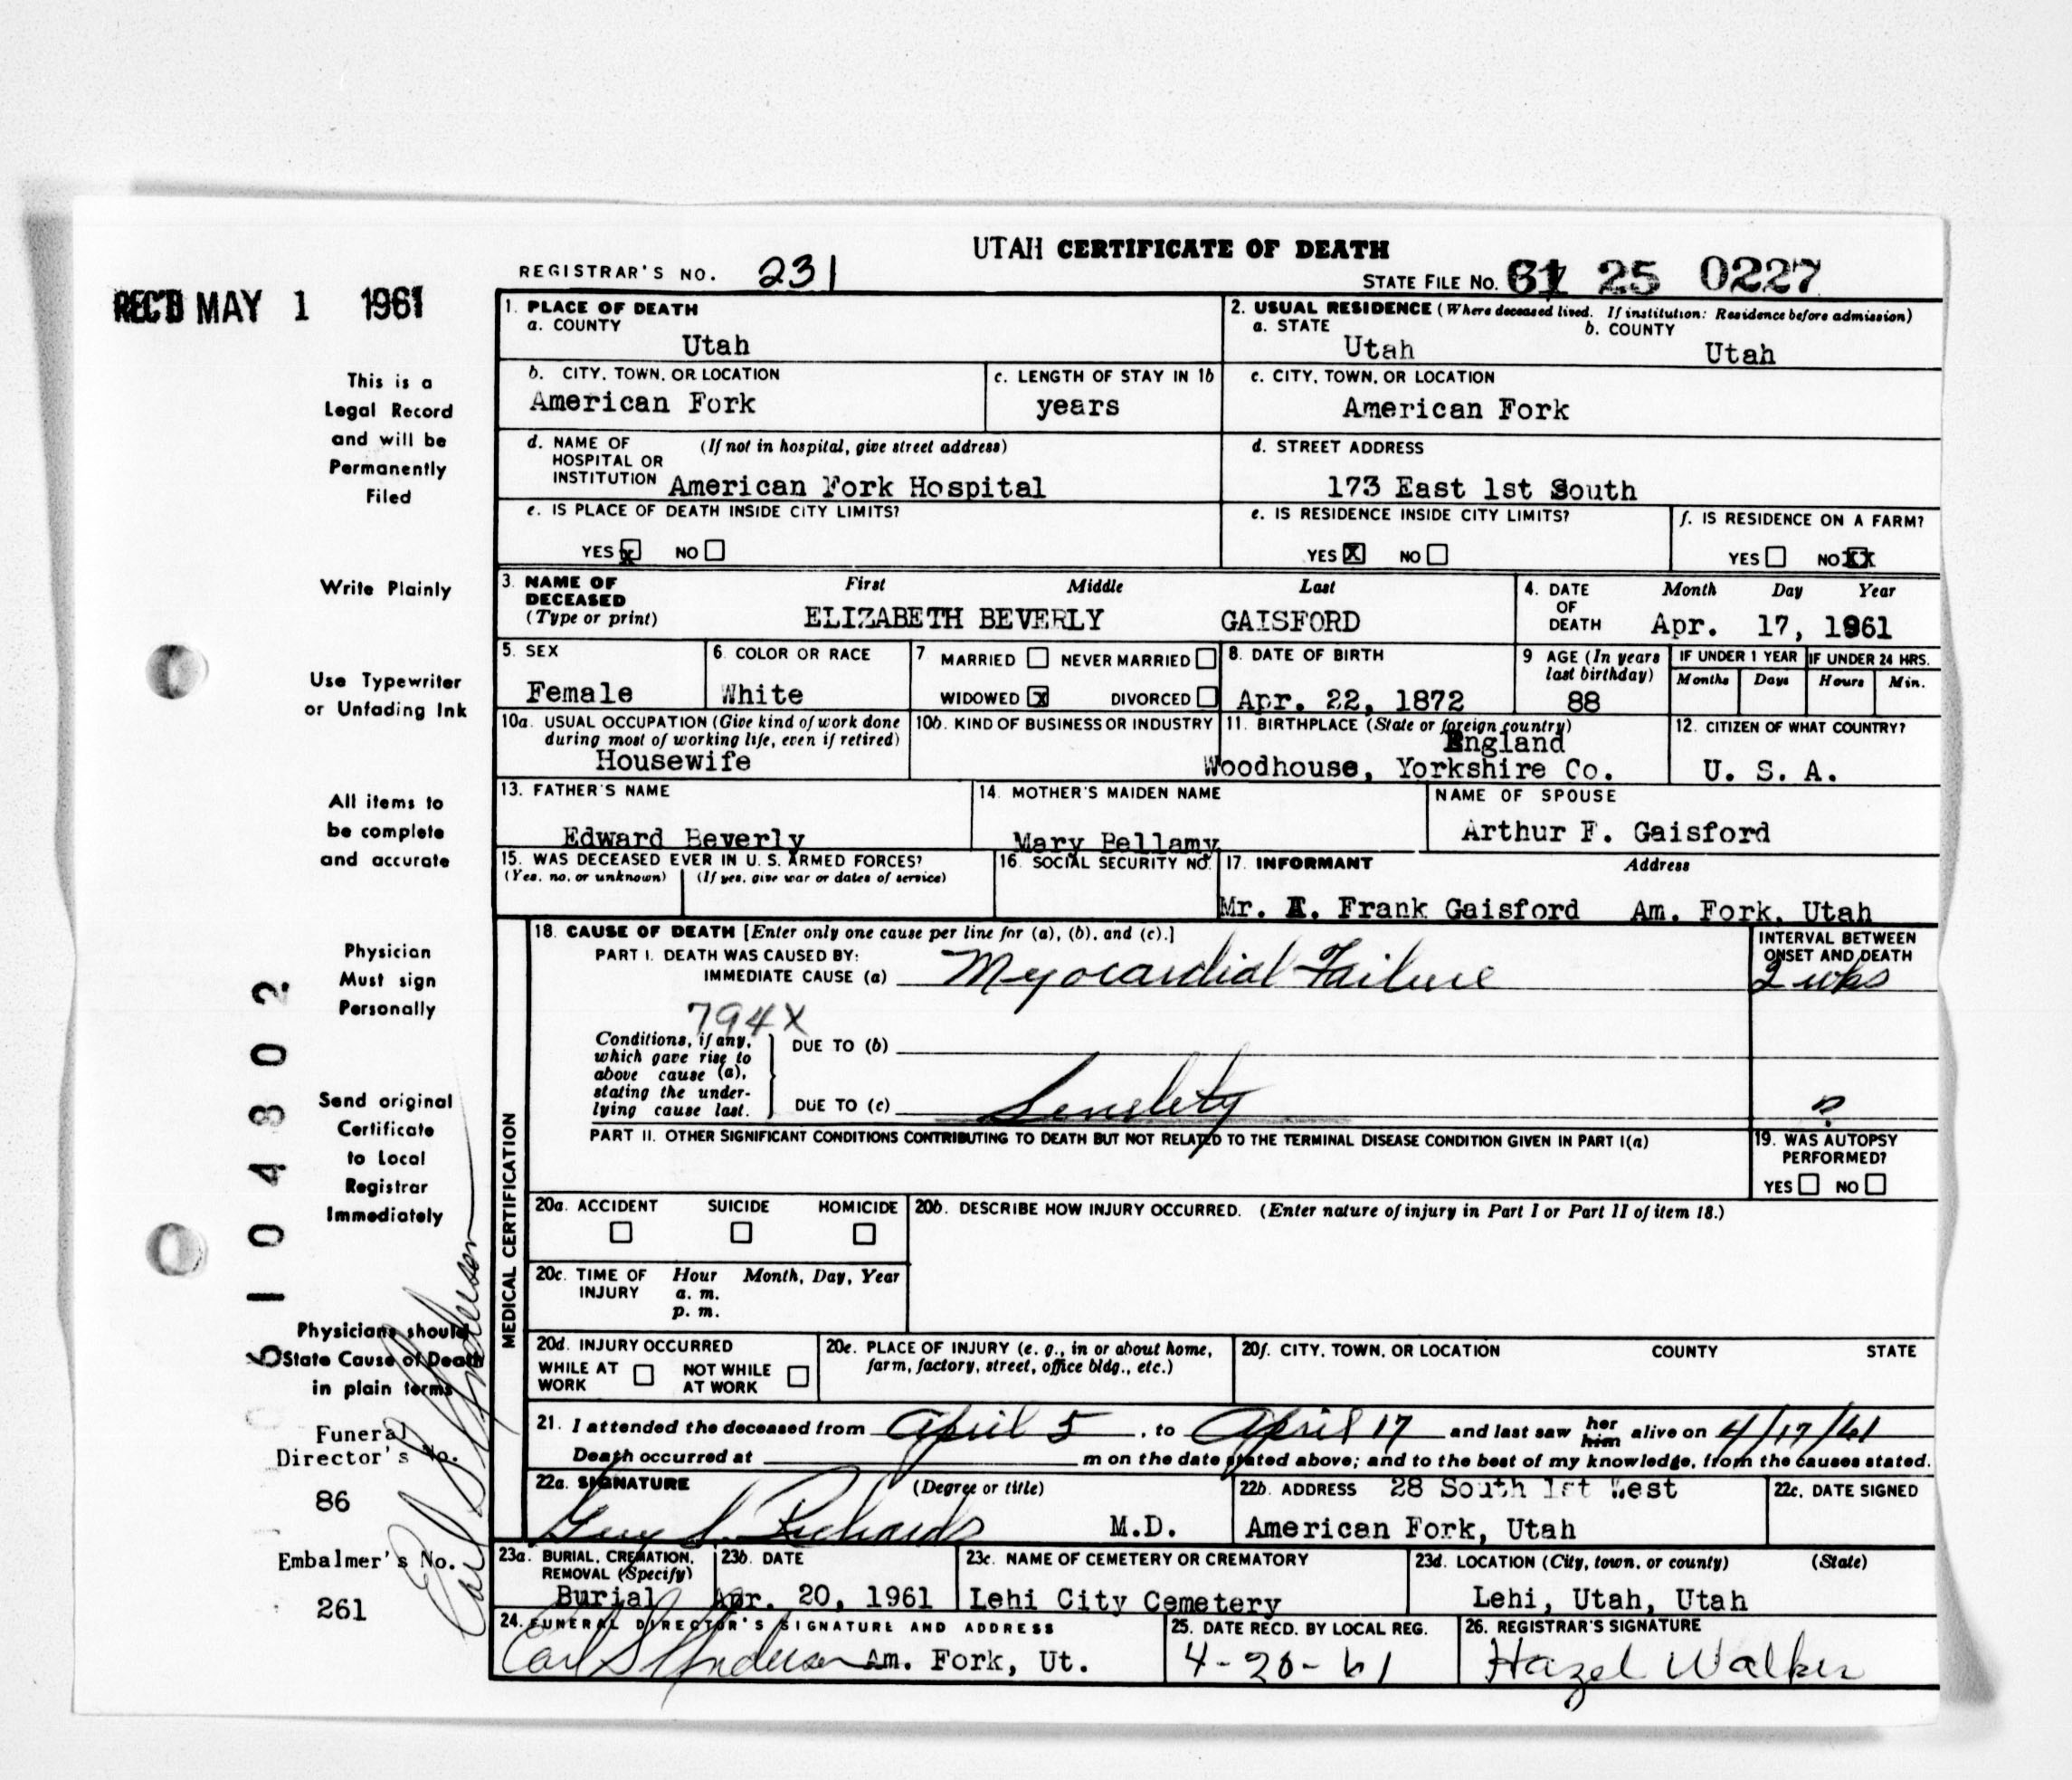 UTAH CERTIFICATE OF DEATH
REGISTRAR'S NO. 231
STATE FILE NO. 61 25 0227
REC'D MAY 1 1961
This is a
Legal Record
and will be
Permanently
Filed
Write Plainly
Use Typewriter
or Unfading Ink
All items to
be complete
and accurate
Physician
Must sign
Personally
Send original
Certificate
to Local
Registrar
Immediately
Physicians should
State Cause of Death
in plain terms
Funeral
Director's No.
86
Embalmer's No.
261
Carl S Anderson
6104802
1. PLACE OF DEATH
a. COUNTY
Utah
2. USUAL RESIDENCE (Where deceased lived. If institution: Residence before admission)
a. STATE b. COUNTY
Utah Utah
b. CITY, TOWN, OR LOCATION
American Fork
c. LENGTH OF STAY IN 1b
years
c. CITY, TOWN, OR LOCATION
American Fork
d. NAME OF (If not in hospital, give street address)
HOSPITAL OR
INSTITUTION American Fork Hospital
d. STREET ADDRESS
173 East 1st South
e. IS PLACE OF DEATH INSIDE CITY LIMITS?
YES x NO
e. IS RESIDENCE INSIDE CITY LIMITS?
YES X NO
f. IS RESIDENCE ON A FARM?
YES NO XX
3. NAME OF First Middle Last
DECEASED
(Type or print) ELIZABETH BEVERLY GAISFORD
4. DATE Month Day Year
OF
DEATH Apr. 17, 1961
5. SEX
Female
6. COLOR OR RACE
White
7 MARRIED NEVER MARRIED
WIDOWED x DIVORCED
8. DATE OF BIRTH
Apr. 22, 1872
9 AGE (In years
last birthday)
88
IF UNDER 1 YEAR IF UNDER 24 HRS.
Months Days Hours Min.
10a. USUAL OCCUPATION (Give kind of work done
during most of working life, even if retired)
Housewife
10b. KIND OF BUSINESS OR INDUSTRY
11. BIRTHPLACE (State or foreign country)
England
Woodhouse, Yorkshire Co.
12. CITIZEN OF WHAT COUNTRY?
U. S. A.
13. FATHER'S NAME
Edward Beverly
14. MOTHER'S MAIDEN NAME
Mary Bellamy
NAME OF SPOUSE
Arthur F. Gaisford
15. WAS DECEASED EVER IN U. S. ARMED FORCES?
(Yes, no, or unknown) (If yes, give war or dates of service)
16. SOCIAL SECURITY NO.
17. INFORMANT Address
Mr. A. Frank Gaisford Am. Fork, Utah
MEDICAL CERTIFICATION
18. CAUSE OF DEATH [Enter only one cause per line for (a), (b), and (c).]
PART I. DEATH WAS CAUSED BY:
IMMEDIATE CAUSE (a) Myocardial Failure
INTERVAL BETWEEN
ONSET AND DEATH
2 wks
794X
Conditions, if any,
which gave rise to
above cause (a),
stating the under-
lying cause last.
DUE TO (b)
DUE TO (c) Senelety
?
PART II. OTHER SIGNIFICANT CONDITIONS CONTRIBUTING TO DEATH BUT NOT RELATED TO THE TERMINAL DISEASE CONDITION GIVEN IN PART I(a)
19. WAS AUTOPSY
PERFORMED?
YES NO
20a. ACCIDENT SUICIDE HOMICIDE
20b. DESCRIBE HOW INJURY OCCURRED. (Enter nature of injury in Part I or Part II of item 18.)
20c. TIME OF Hour Month, Day, Year
INJURY a. m.
p. m.
20d. INJURY OCCURRED
WHILE AT NOT WHILE
WORK AT WORK
20e. PLACE OF INJURY (e. g., in or about home,
farm, factory, street, office bldg., etc.)
20f. CITY, TOWN, OR LOCATION COUNTY STATE
21. I attended the deceased from April 5, to April 17 and last saw her him alive on 4/17/61
Death occurred at m on the date stated above; and to the best of my knowledge, from the causes stated.
22a. SIGNATURE (Degree or title)
Guy S. Richards M.D.
22b. ADDRESS 28 South 1st West
American Fork, Utah
22c. DATE SIGNED
23a. BURIAL, CREMATION,
REMOVAL (Specify)
Burial
23b. DATE
Apr. 20, 1961
23c. NAME OF CEMETERY OR CREMATORY
Lehi City Cemetery
23d. LOCATION (City, town, or county) (State)
Lehi, Utah, Utah
24. FUNERAL DIRECTOR'S SIGNATURE AND ADDRESS
Carl S Anderson Am. Fork, Ut.
25. DATE RECD. BY LOCAL REG.
4-20-61
26. REGISTRAR'S SIGNATURE
Hazel Walker